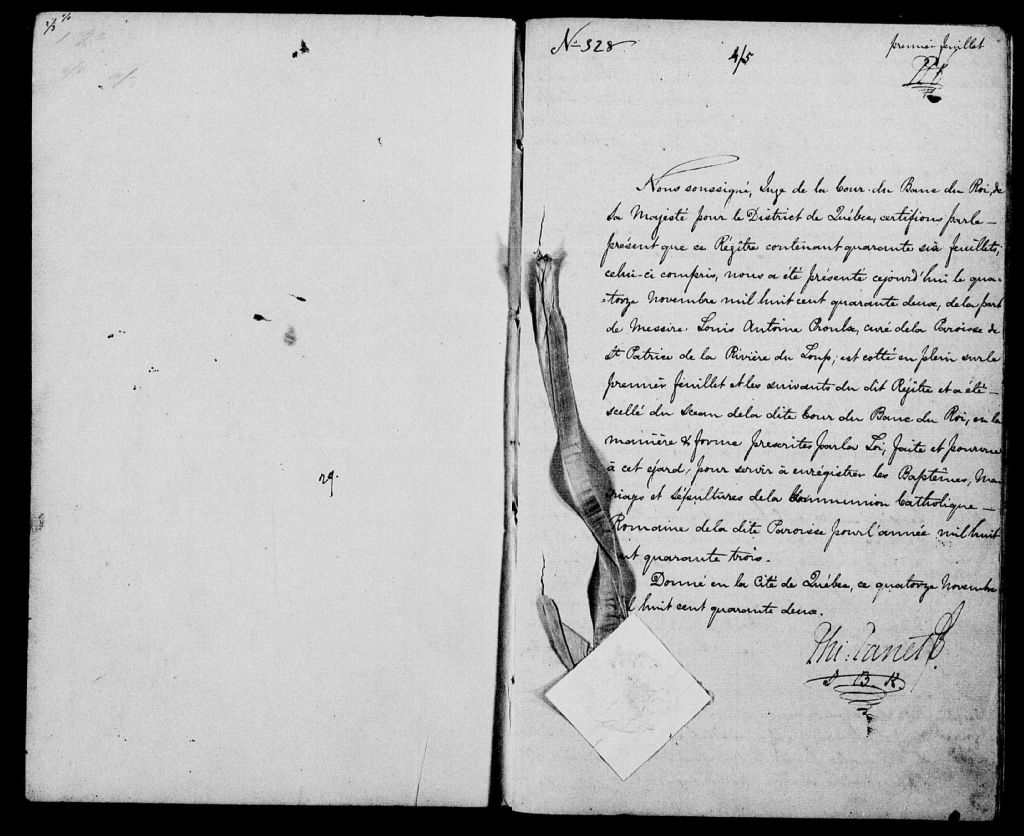 29.
No 328
4/5
premier feuillet
Nous soussigné, Juge de la Cour du Banc du Roi, de
Sa Majesté pour le District de Québec, certifions par le
présent que ce Régître contenant quarante six feuillets,
celui-ci compris, nous a été présenté cejourd'hui le qua-
=torze Novembre mil huit cent quarante deux, de la part
de Messire Louis Antoine Proulx, curé de la Paroisse de
St Patrice de la Rivière du Loup; est cotté en plein sur le
premier feuillet et les suivants du dit Régître et a été
scellé du Sceau de la dite Cour du Banc du Roi, en la
manière & forme prescrites par la Loi, faite et pourvue
à cet égard, pour servir à enrégistrer les Baptêmes, Ma
riages et Sépultures de la Communion Catholique
Romaine de la dite Paroisse pour l'année mil huit
nt quarante trois.
Donné en la Cité de Québec, ce quatorze Novembre
l huit cent quarante deux.
Phi. Panet
J B R